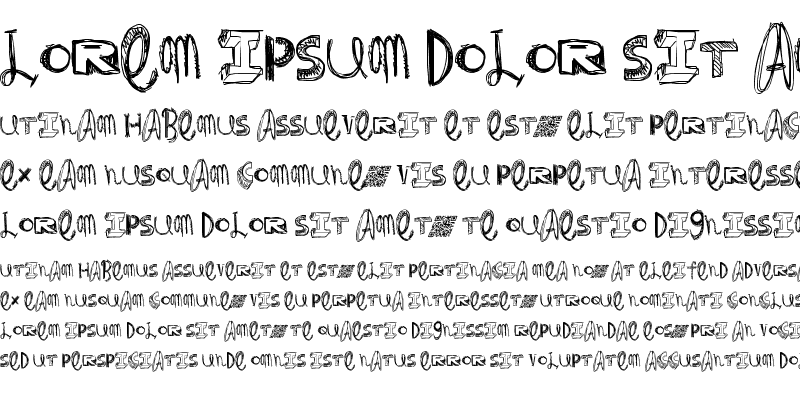 Lorem Ipsum Dolor sit A
utinam Habemus Assueverit et est elit pertinac
ex eam nusquam Commune vis eu perpetua Interesse
Lorem Ipsum Dolor sit Amet te quaestio Dignissi
utinam Habemus Assueverit et est elit pertinacia mea no At eleifend Advers
ex eam nusquam Commune vis eu perpetua Interesset utroque nominati Conclus
Lorem Ipsum Dolor sit Amet te quaestio Dignissim repudiandae eos pri An voc
sed ut perspiciatis unde omnis iste natus error sit voluptatem Accusantium Do